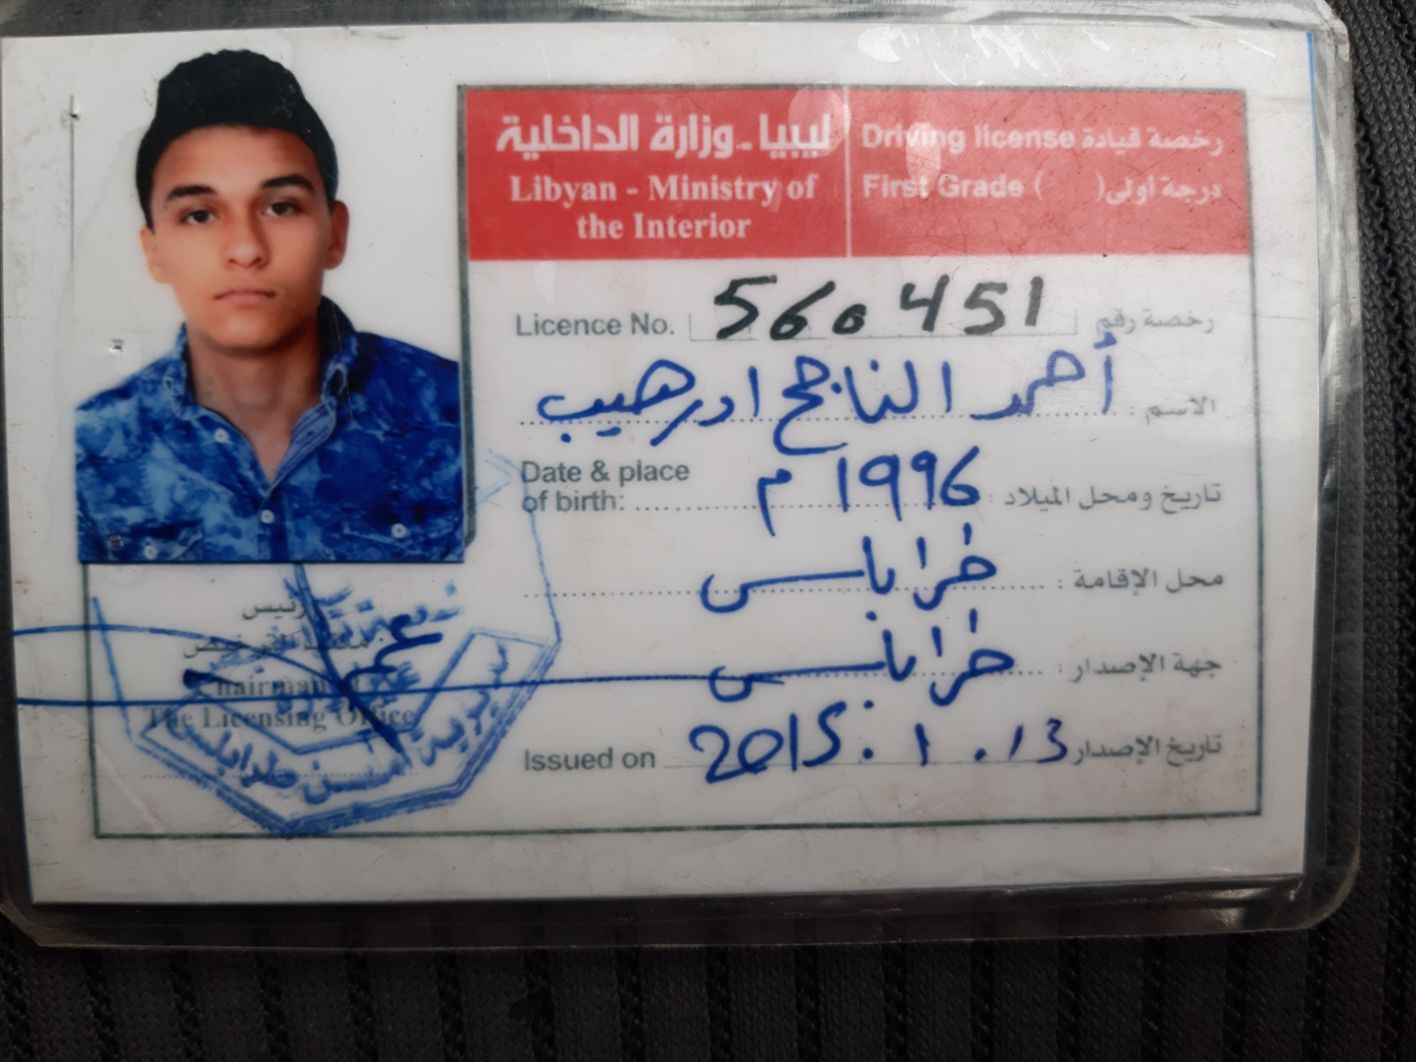 ليبيا - وزارة الداخلية
Libyan - Ministry of
the Interior
Driving license رخصة قيادة
First Grade (     ) درجة أولى
Licence No. 560451 رخصة رقم
الاسم : أحمد الناجح ادرهيب
Date & place
of birth: 1996 م تاريخ ومحل الميلاد :
محل الإقامة : طرابلس
جهة الإصدار : طرابلس
Issued on 2015 . 1 . 13 تاريخ الإصدار
رئيس
Chairman
The Licensing Office